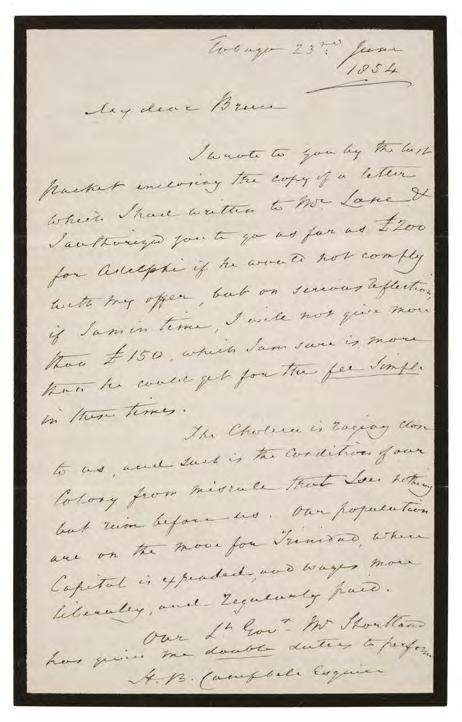 Tobago 23rd June
1854
My dear Bruce
I wrote to you by the last
Packet enclosing the copy of a letter
which I had written to Mr Lane &
I authorized you to go as far as £200
for Adelphi if he would not comply
with my offer, but on serious reflection,
if I am in time, I will not give more
than £150, which I am sure is more
than he could get for the fee simple
in these times.
The Cholera is raging close
to us, and such is the condition of our
Colony from misrule that I see nothing
but ruin before us. Our population
are on the move for Trinidad, where
Capital is expended, and wages more
liberally, and regularly paid.
Our Lt Govr Mr Shortland
has given me double duties to perform
H. B. Campbell Esquire